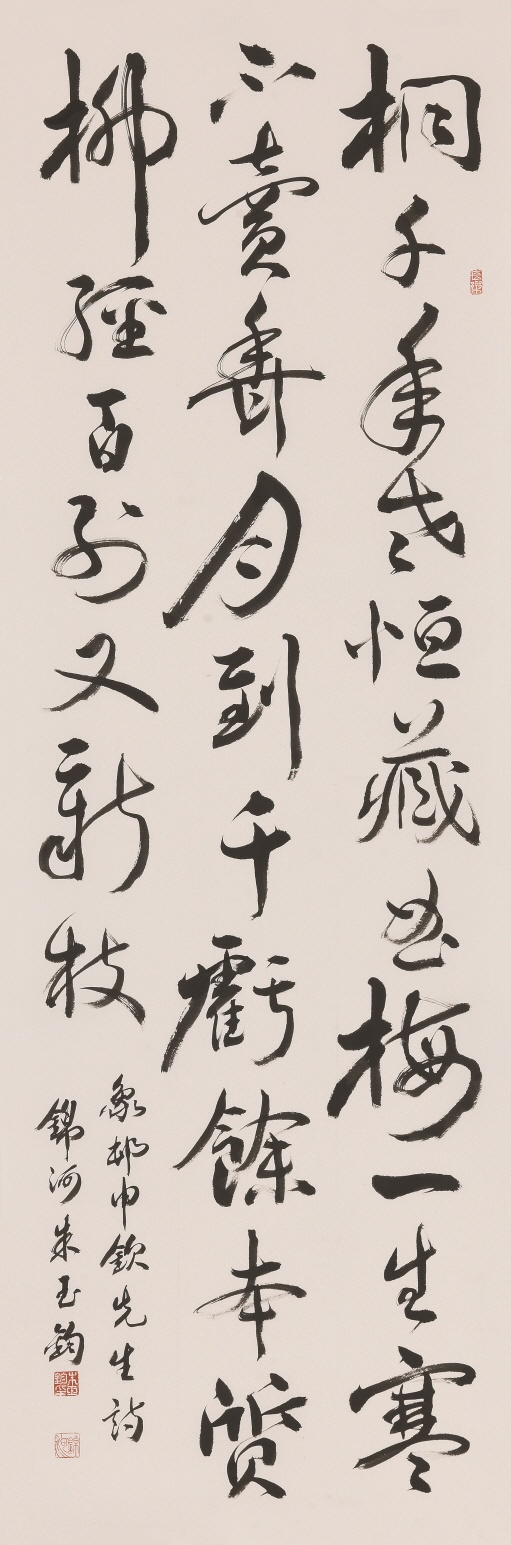 桐千年老恒藏曲梅一生寒
不賣香月到千虧餘本質
柳經百別又新枝
象邨申欽先生詩
錦河朱玉鈞